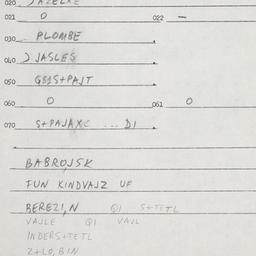 020
021 O 022 —
030 PLOMBE
040 ) JASLES
050 GBIS+PAJT
060 O 061 O
070 S+PAJAXC ... DI
BABROJSK
FUN KINDVAJZ UF
BEREZI,N QI S+TETL
VAJLE QI VAJL
INDERS+TETL
Z+LO,BIN